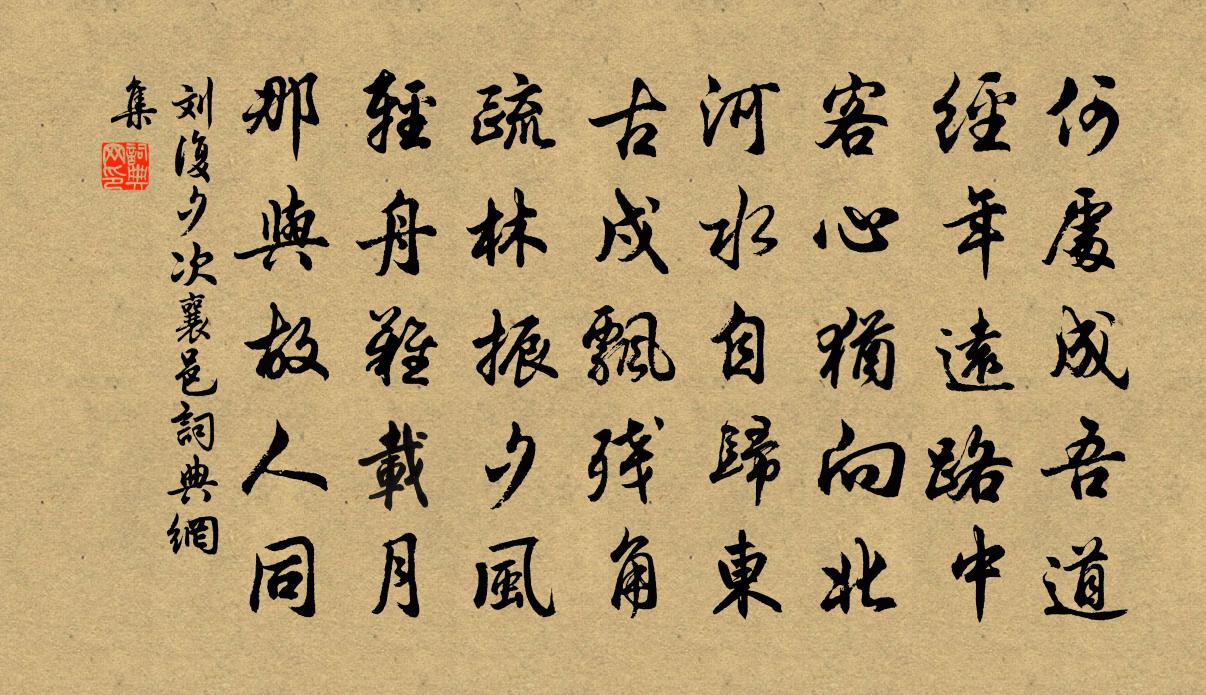 何處成吾道
經年遠路中
客心猶向北
河水自歸東
古戍飄殘角
疏林振夕風
輕舟難載月
那與故人同
刘復夕次襄邑詞典網
集
詞典
网印